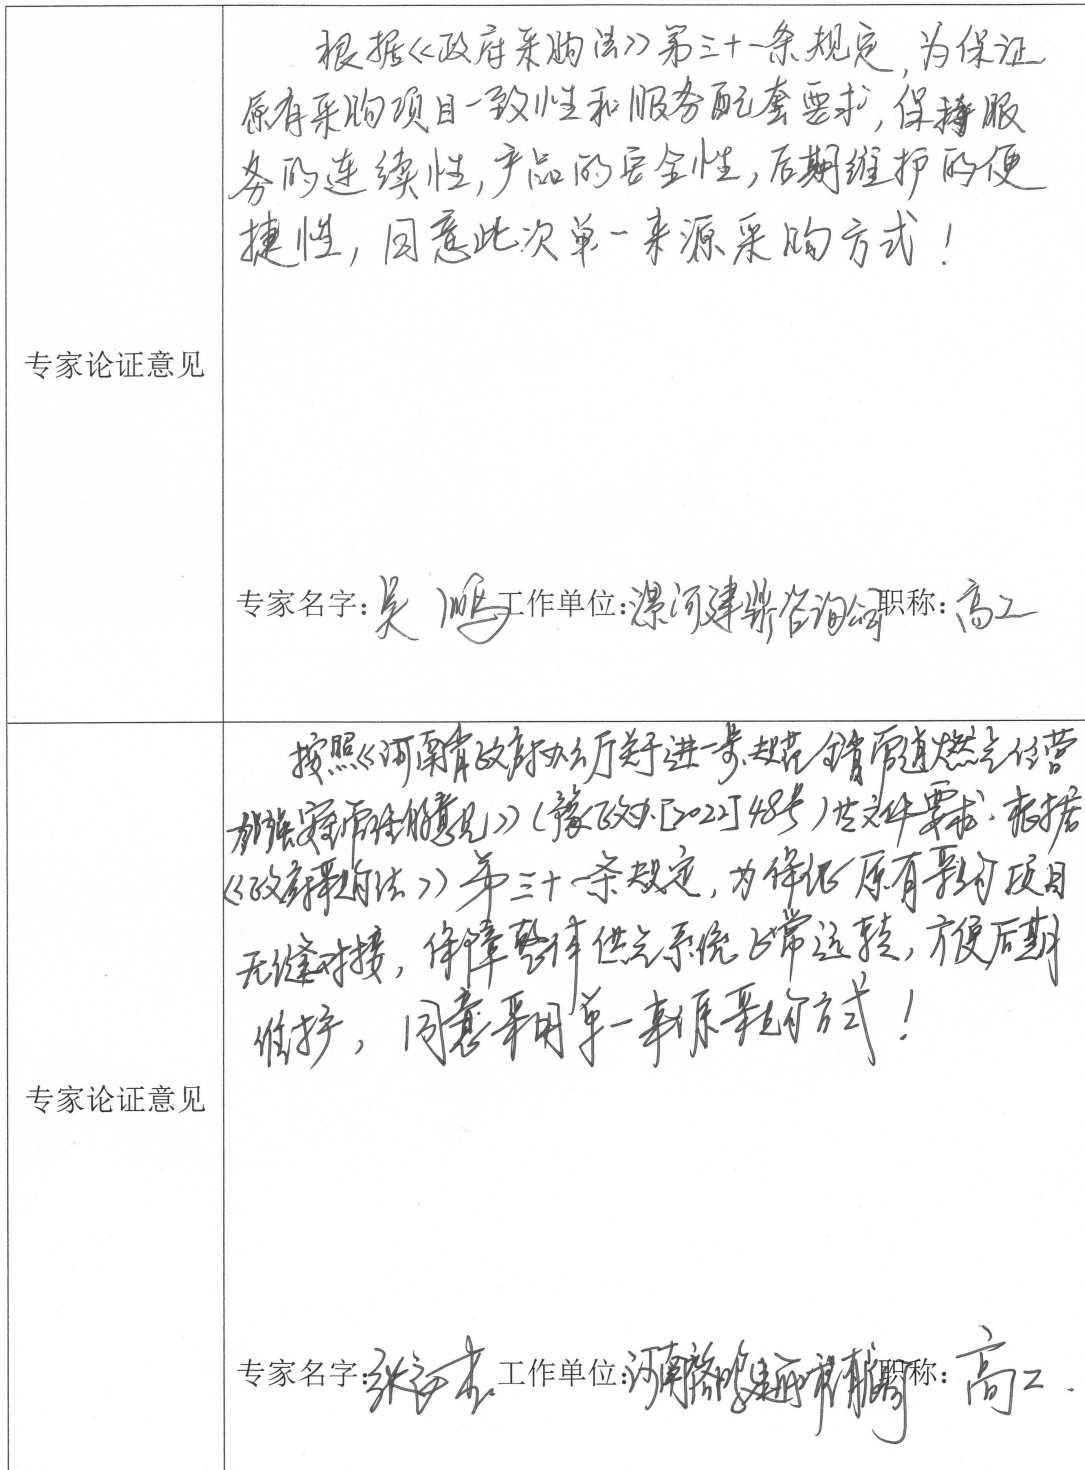 根据《政府采购法》第三十一条规定,为保证
原有采购项目一致性和服务配套要求,保持服
务的连续性,产品的安全性,后期维护的便
捷性,同意此次单一来源采购方式!
专家论证意见
专家名字:吴鹏 工作单位:漯河建鼎咨询公司 职称:高工
按照《河南省政府办公厅关于进一步规范全省管道燃气经营
加强安全管理的意见》(豫政办[2022]48号)文件要求.根据
《政府采购法》第三十一条规定,为保证原有采购项目
无缝对接,保障整体供气系统正常运转,方便后期
维护,同意采用单一来源采购方式!
专家论证意见
专家名字:张 杰 工作单位:河南 有限公司 职称:高工.